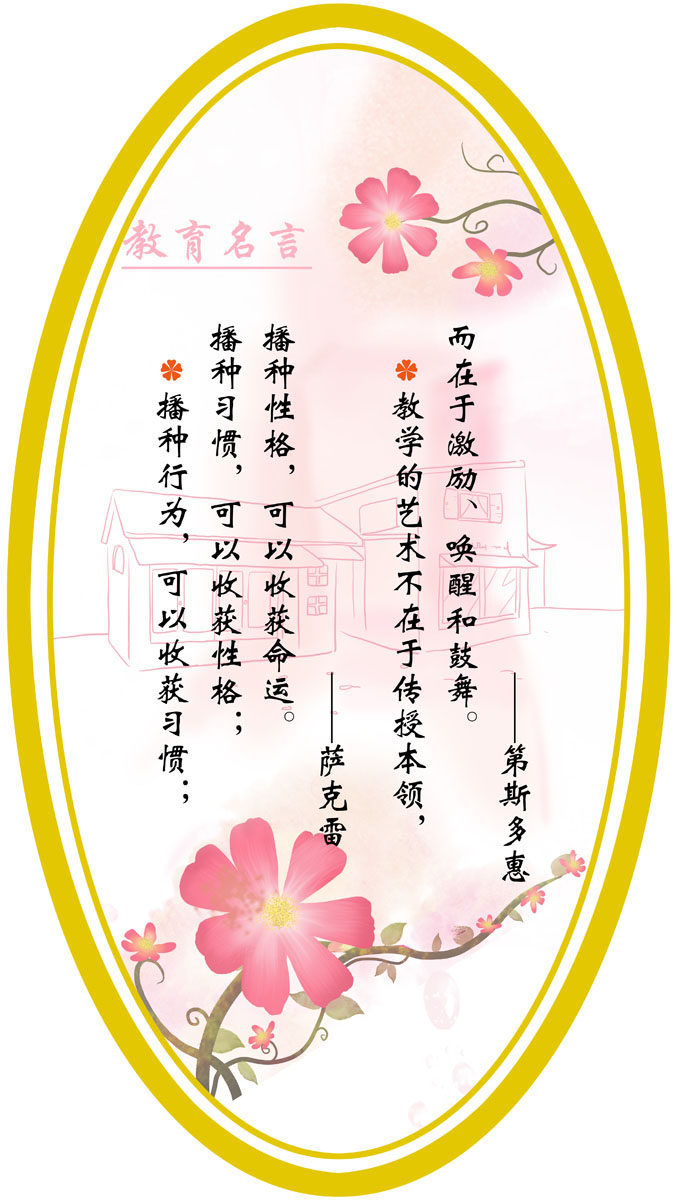 教育名言
播种行为，可以收获习惯；
播种习惯，可以收获性格；
播种性格，可以收获命运。
——萨克雷
教学的艺术不在于传授本领，
而在于激励、唤醒和鼓舞。
——第斯多惠